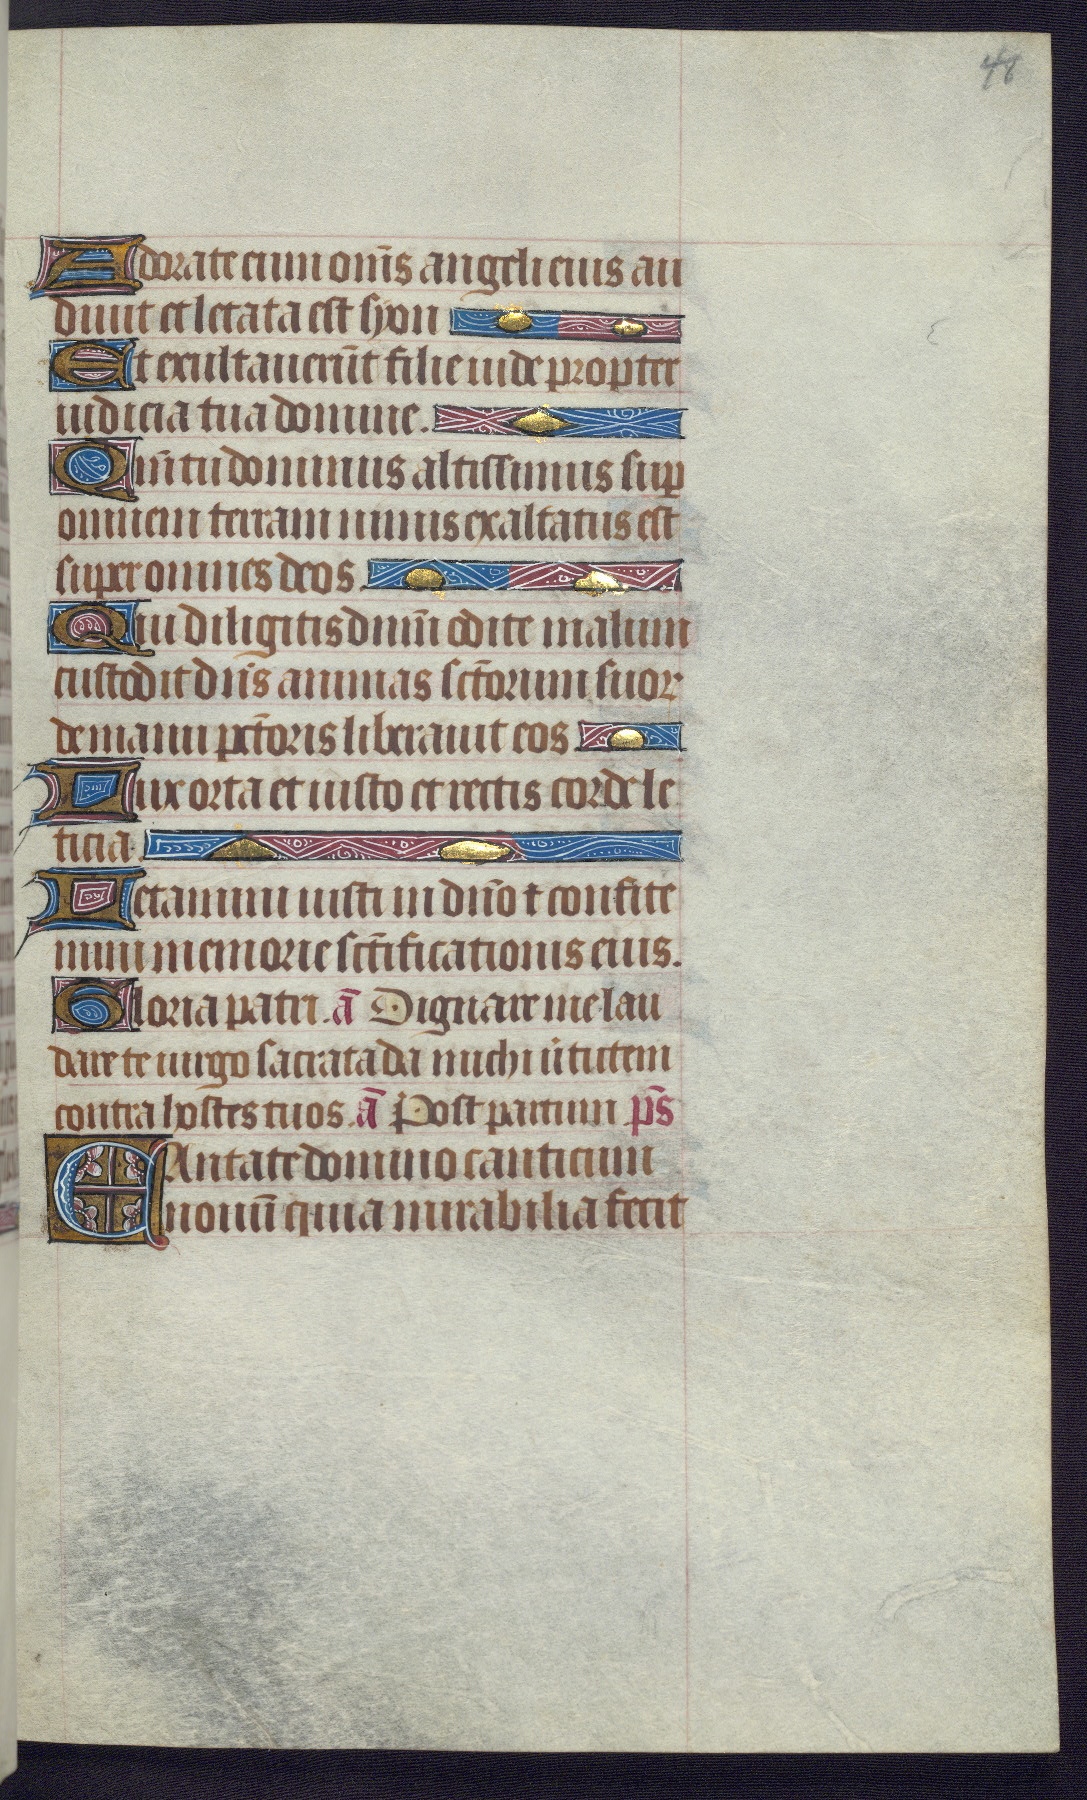 48
Adorate eum om̄s angeli eius au
diuit et letata est syon
Et exultauerūt filie iude propter
iudicia tua domine.
Qm̄ tu dominus altissimus sup̲
omnem terram nimis exaltatus est
super omnes deos.
Qui diligitis dnm̄ odite malum
custodit dn̄s animas sc̄torum suor
de manu pc̄toris liberauit eos.
Lux orta et iusto et rectis corde le
ticia.
Letamini iusti in dn̄o ⁊ confite
mini memorie sc̄tificationis eius.
Gloria patri. ā Dignare me lau
dare te uirgo sacrata da michi ūtutem
contra hostes tuos. ā Post partum p̄s
CAntate domino canticum
nouū quia mirabilia fecit